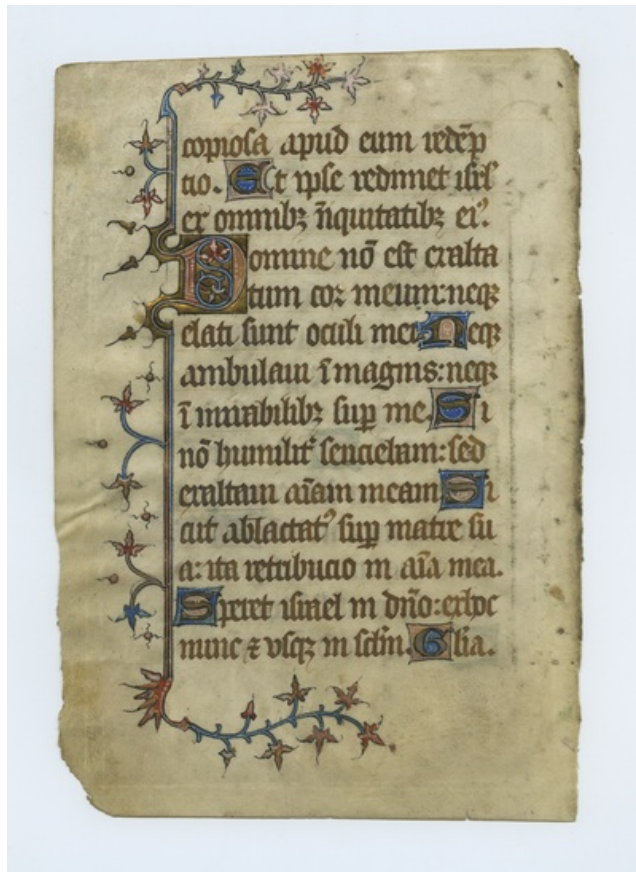 copiosa apud eum redēp
tio. Et ipse redimet isrl
ex omnibꝫ īiquitatibꝫ eiꝰ.
Domine nō est exalta
tum cor meum: neqꝫ
elati sunt oculi mei. Neqꝫ
ambulaui ī magnis: neqꝫ
ī mirabilibꝫ suꝑ me. Si
nō humilit̉ senciebam: sed
exaltaui aīam meam. Si
cut ablactatꝰ suꝑ matre su
a: ita retribucio in aīa mea.
Speret israel in dn̄o: ex hoc
nunc ⁊ vsqꝫ in sclm̄. Glīa.